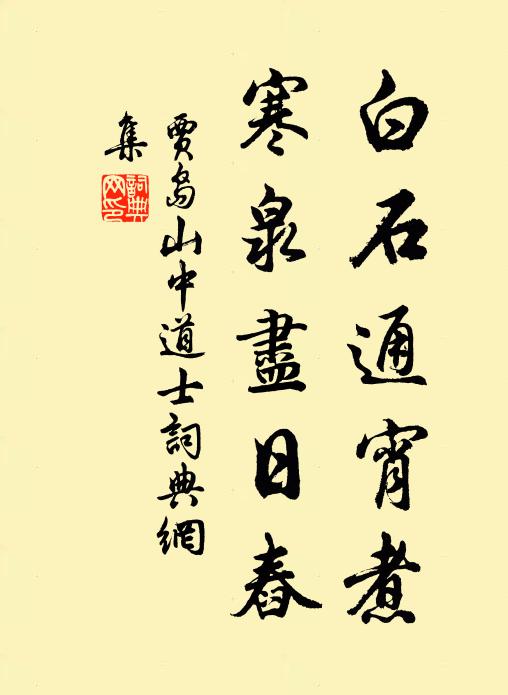 白石通宵煮
寒泉盡日舂
賈島山中道士詞典網
集
詞典
网印